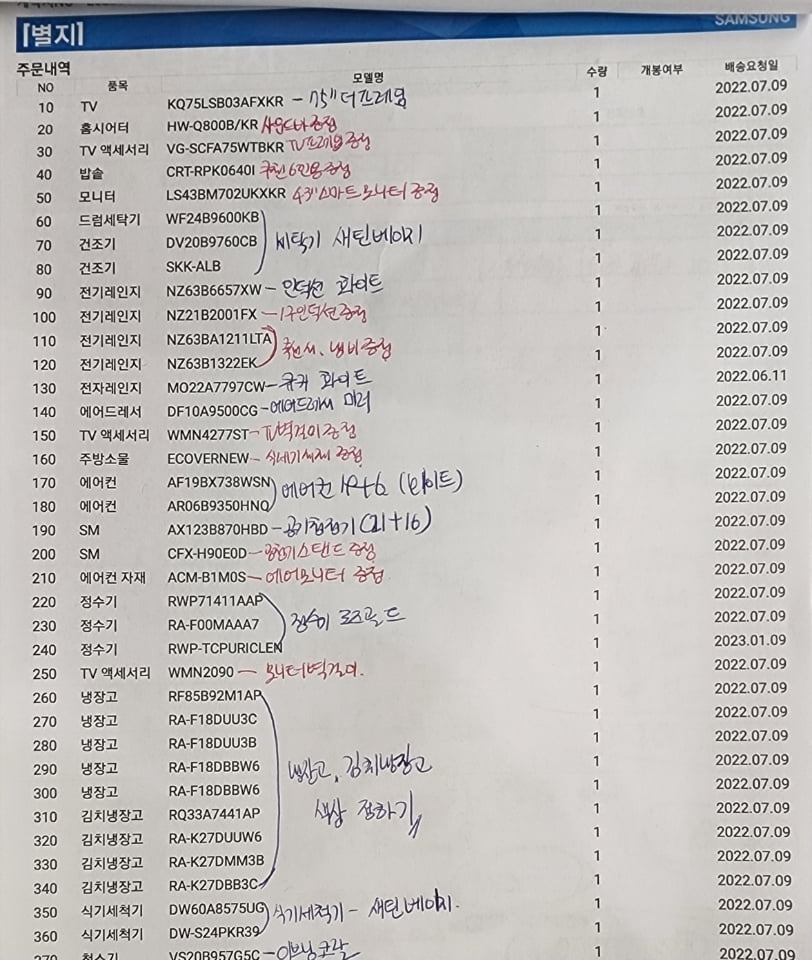 SAMSUNG
[별지]
주문내역
NO 품목 모델명 수량 개봉여부 배송요청일
10 TV KQ75LSB03AFXKR – 75" 더프레임 1 2022.07.09
20 홈시어터 HW-Q800B/KR 사운드바 증정 1 2022.07.09
30 TV 액세서리 VG-SCFA75WTBKR TV프레임 증정 1 2022.07.09
40 밥솥 CRT-RPK0640I 쿠첸 6인용 증정 1 2022.07.09
50 모니터 LS43BM702UKXKR 43"스마트모니터 증정 1 2022.07.09
60 드럼세탁기 WF24B9600KB 1 2022.07.09
70 건조기 DV20B9760CB 세탁기 새틴베이지 1 2022.07.09
80 건조기 SKK-ALB 1 2022.07.09
90 전기레인지 NZ63B6657XW – 인덕션 화이트 1 2022.07.09
100 전기레인지 NZ21B2001FX – 1구인덕션증정 1 2022.07.09
110 전기레인지 NZ63BA1211LTA 1 2022.07.09
120 전기레인지 NZ63B1322EK 냄비증정 1 2022.07.09
130 전자레인지 MO22A7797CW – 큐커 화이트 1 2022.06.11
140 에어드레서 DF10A9500CG – 에어드레서 미러 1 2022.07.09
150 TV 액세서리 WMN4277ST – TV벽걸이 증정 1 2022.07.09
160 주방소물 ECOVERNEW – 식세기세제 증정 1 2022.07.09
170 에어컨 AF19BX738WSN 에어컨 19+6 (화이트) 1 2022.07.09
180 에어컨 AR06B9350HNQ 1 2022.07.09
190 SM AX123B870HBD – 공기청정기 (21+16) 1 2022.07.09
200 SM CFX-H90E0D – 공청기스탠드 증정 1 2022.07.09
210 에어컨 자재 ACM-B1M0S – 에어모니터 증정 1 2022.07.09
220 정수기 RWP71411AAP 1 2022.07.09
230 정수기 RA-F00MAAA7 정수기 로즈골드 1 2022.07.09
240 정수기 RWP-TCPURICLEN 1 2023.01.09
250 TV 액세서리 WMN2090 – 모니터벽걸이. 1 2022.07.09
260 냉장고 RF85B92M1AP 1 2022.07.09
270 냉장고 RA-F18DUU3C 1 2022.07.09
280 냉장고 RA-F18DUU3B 1 2022.07.09
290 냉장고 RA-F18DBBW6 냉장고, 김치냉장고 1 2022.07.09
300 냉장고 RA-F18DBBW6 1 2022.07.09
310 김치냉장고 RQ33A7441AP 색상 정하기 1 2022.07.09
320 김치냉장고 RA-K27DUUW6 1 2022.07.09
330 김치냉장고 RA-K27DMM3B 1 2022.07.09
340 김치냉장고 RA-K27DBB3C 1 2022.07.09
350 식기세척기 DW60A8575UG 식기세척기 – 새틴베이지. 1 2022.07.09
360 식기세척기 DW-S24PKR39 1 2022.07.09
370 청소기 VS20B957G5C – 이브닝코랄 1 2022.07.09